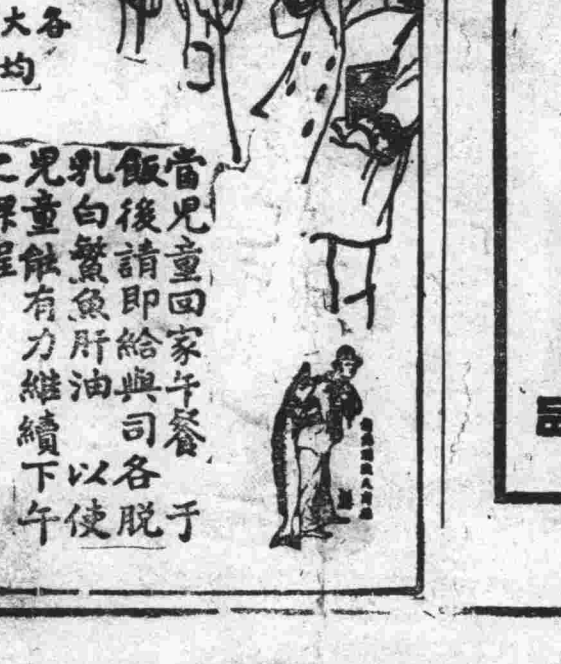 各
大均
當兒童回家午餐 于
飯後請即給與司各脫
乳白鰵魚肝油 以使
兒童能有力繼續下午